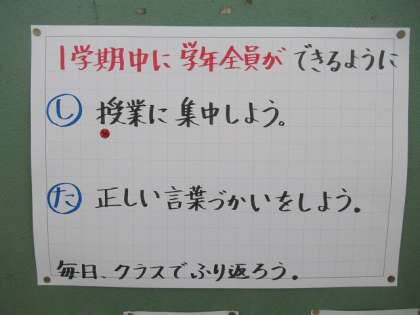 1学期中に学年全員ができるように
し 授業に集中しよう。
た 正しい言葉づかいをしよう。
毎日、クラスでふり返ろう。